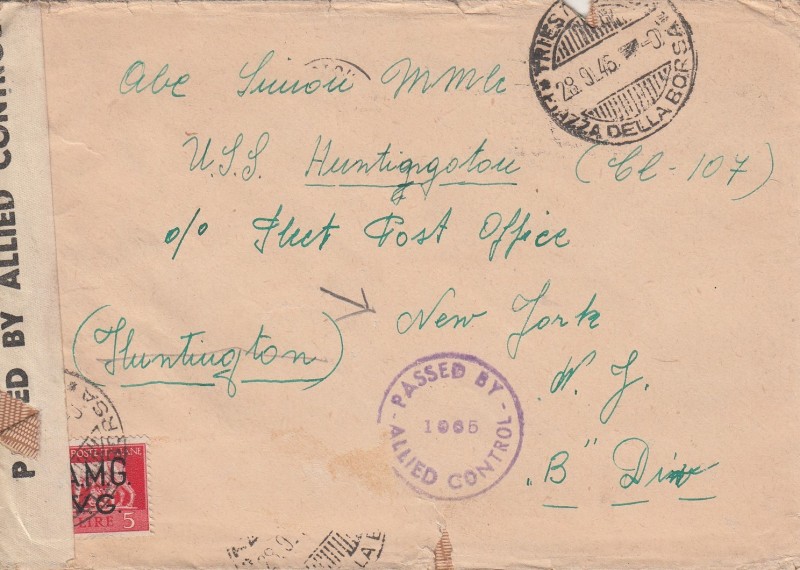 TRIEST
28.9.46
PIAZZA DELLA BORSA
Abe Simon MM1c
U.S.S. Huntiggotou (CL-107)
c/o Fleet Post Office
New York
(Huntington)
N. Y.
"B" Div
PASSED BY
1965
ALLIED CONTROL
ED BY ALLIED CONTRO
POSTE ITALIANE
A.M.G.
V.G.
LIRE 5